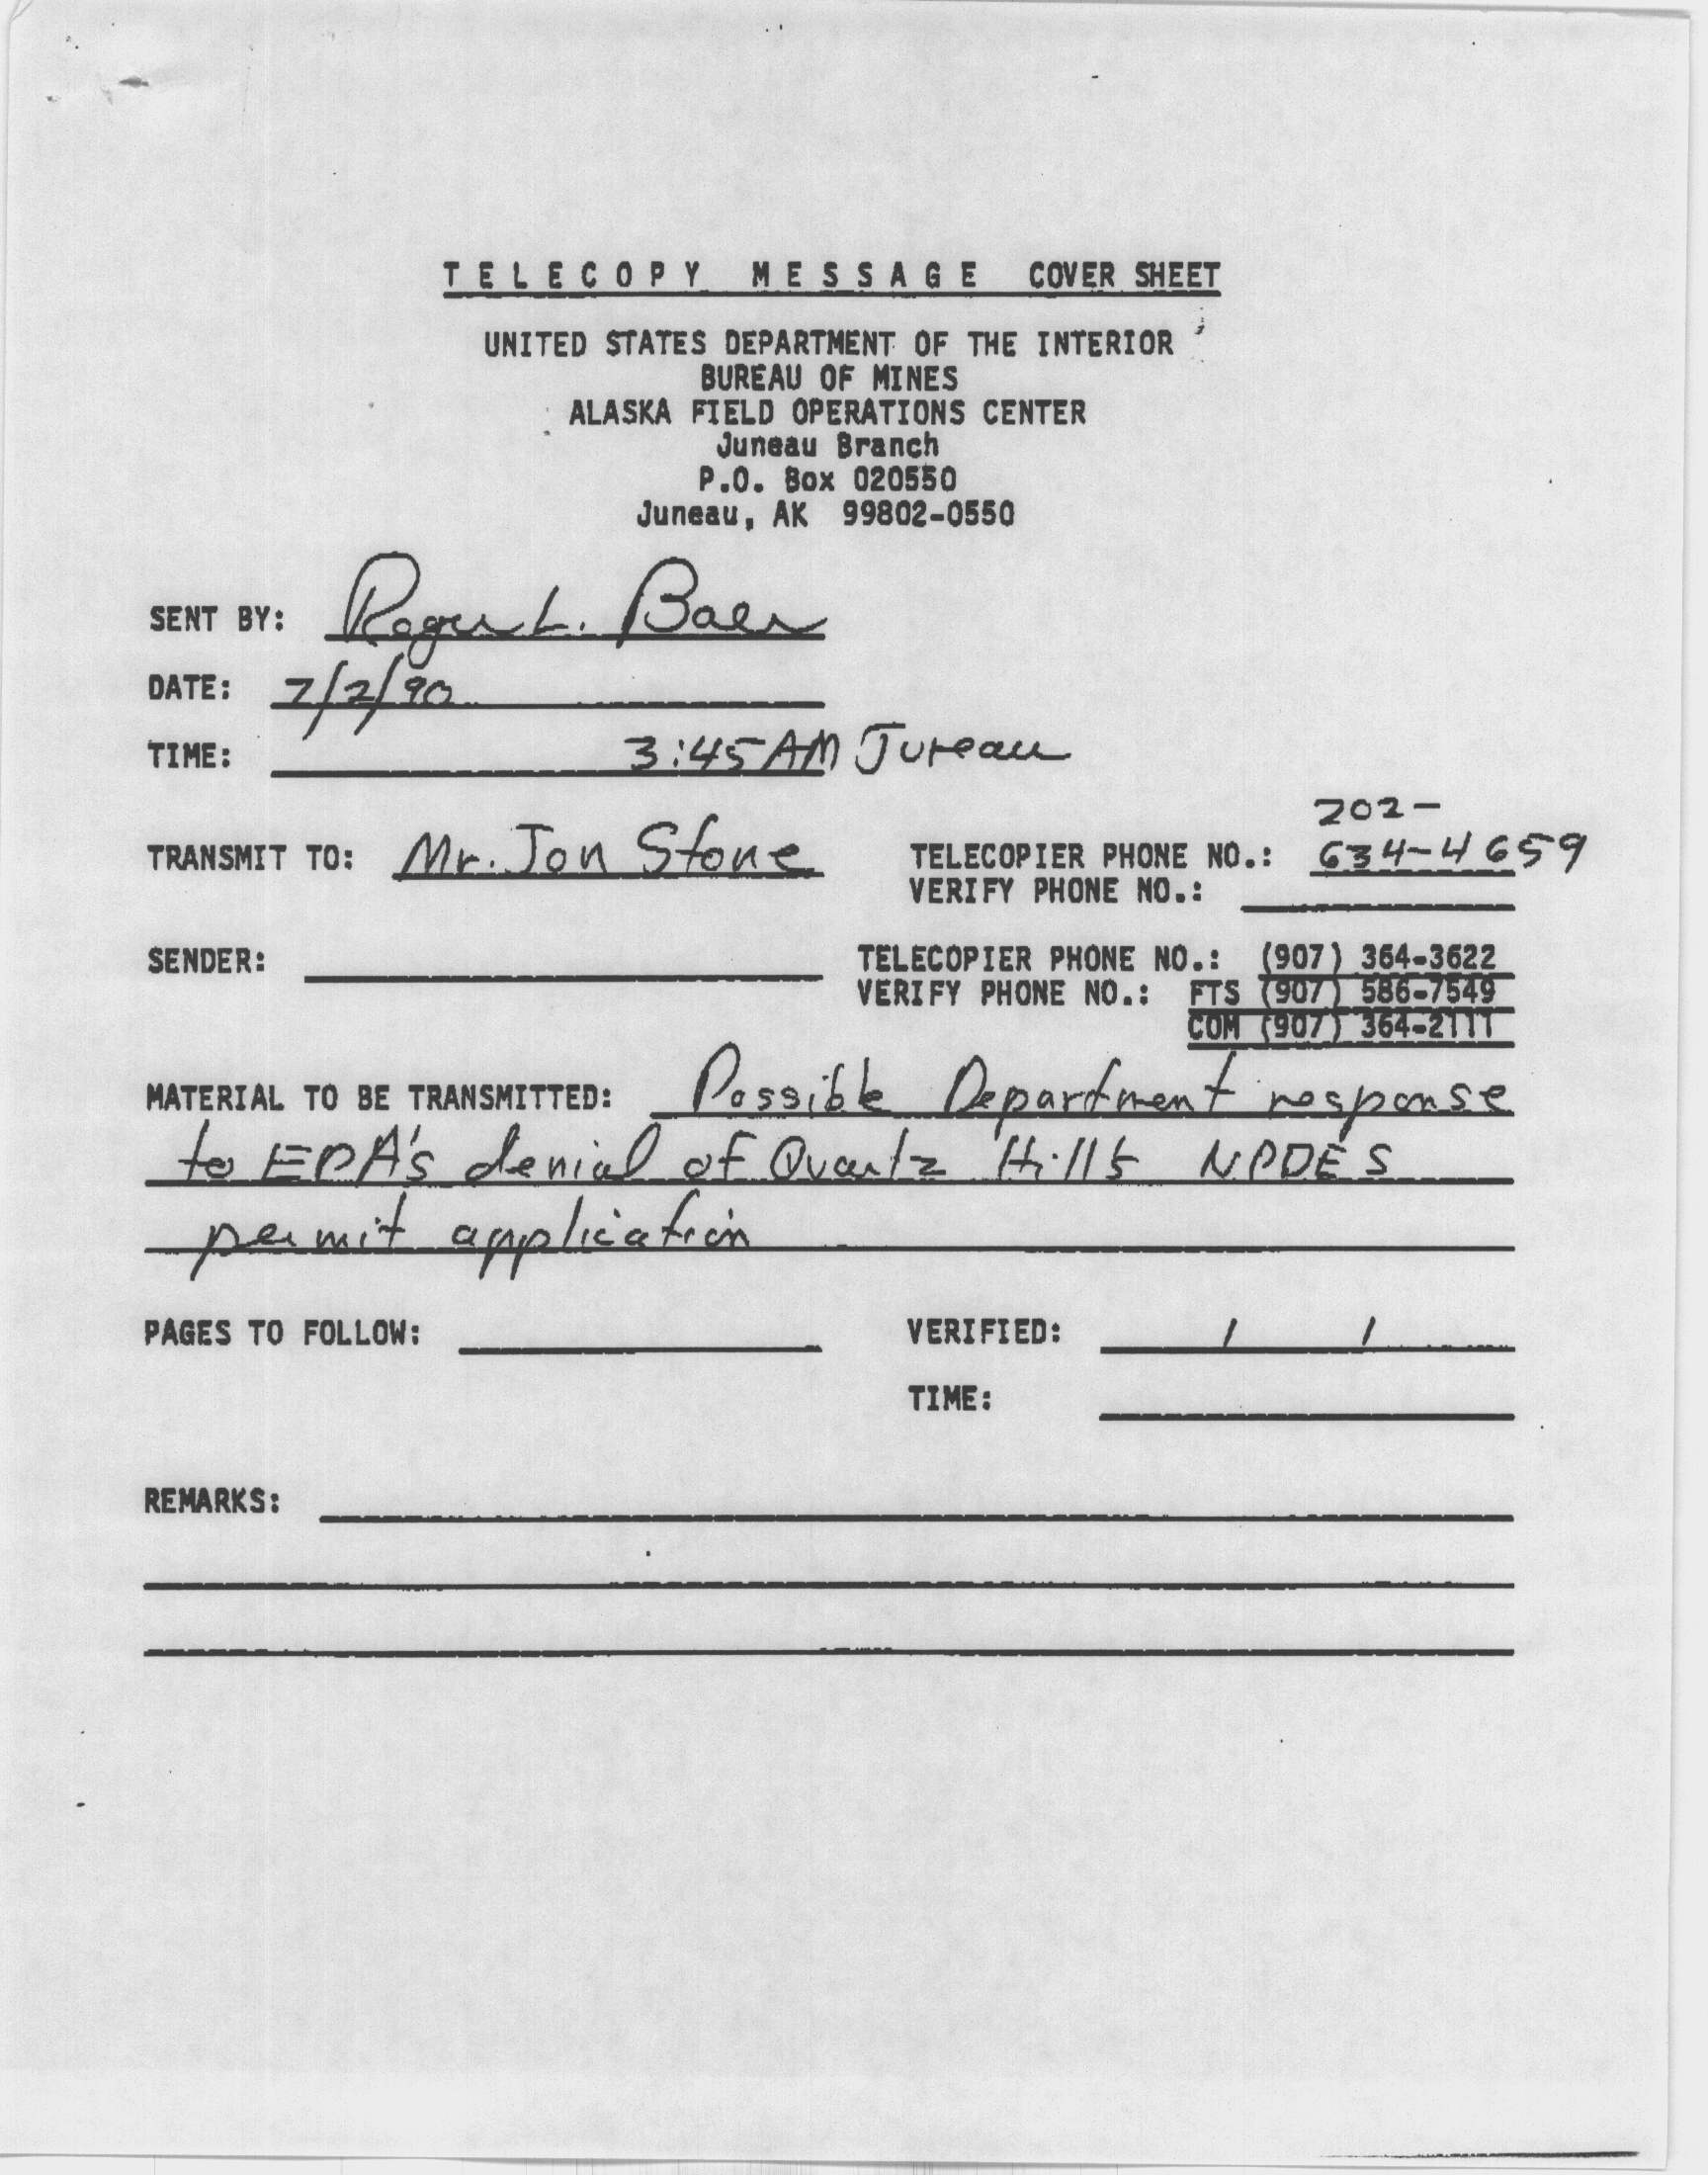 TELECOPY MESSAGE COVER SHEET
UNITED STATES DEPARTMENT OF THE INTERIOR
BUREAU OF MINES
ALASKA FIELD OPERATIONS CENTER
Juneau Branch
P.O. Box 020550
Juneau, AK 99802-0550
SENT BY: Roger L. Baer
DATE: 7/2/90
TIME: 3:45 AM Juneau
202-
TRANSMIT TO: Mr. Jon Stone TELECOPIER PHONE NO.: 634-4659
VERIFY PHONE NO.:
SENDER: TELECOPIER PHONE NO.: (907) 364-3622
VERIFY PHONE NO.: FTS (907) 586-7549
COM (907) 364-2111
MATERIAL TO BE TRANSMITTED: Possible Department response
to EPA's denial of Quartz Hill's NPDES
permit application
PAGES TO FOLLOW: VERIFIED: / /
TIME:
REMARKS: